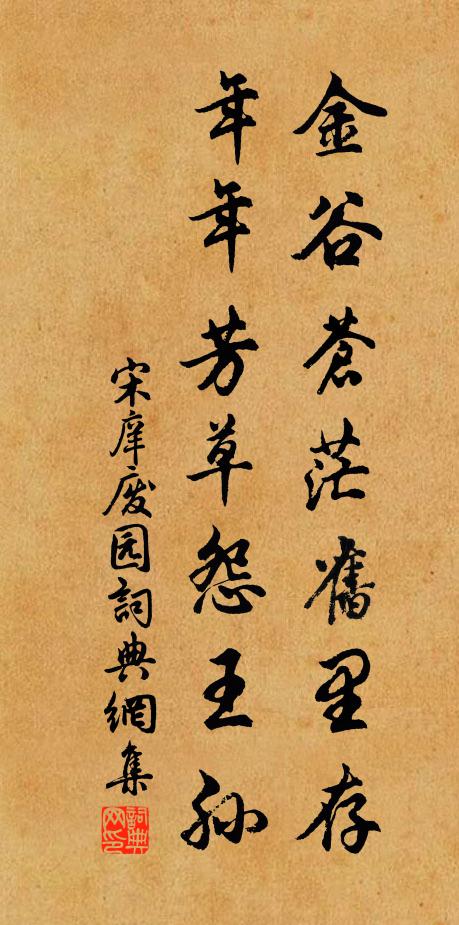 金谷蒼茫舊里存
年年芳草怨王孫
宋庠廢园詞典網集
詞典网印